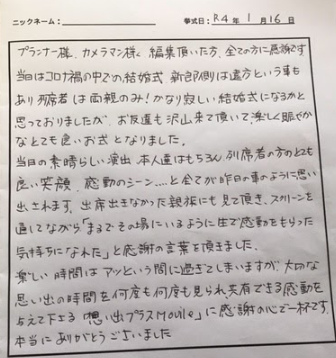 ニックネーム： 挙式日： R4年 1月16日
プランナー様、カメラマン様、編集頂いた方、全ての方に感謝です。
当日はコロナ禍の中での結婚式 新郎側は遠方という事も
あり列席者は両親のみ！かなり寂しい結婚式になるかと
思っておりましたが、お友達も沢山来て頂いて楽しく賑やか
なとても良いお式となりました。
当日の素晴らしい演出 本人達はもちろん列席者の方のとても
良い笑顔、感動のシーン…と全てが昨日の事のように思い
出されます。出席出きなかった親族にも見て頂き、スクリーンを
通してながら「まるでその場にいるように生で感動をもらった
気持ちになれた」と感謝の言葉を頂きました。
楽しい時間はアッという間に過ぎてしまいますが、大切な
思い出の時間を何度も何度も見られ、共有できる感動を
与えて下さる「想い出プラスMovie」に感謝の心で一杯です。
本当にありがとうございました